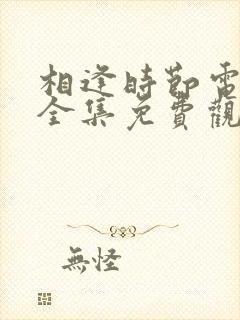 相逢時節電
全集免費觀
無怪